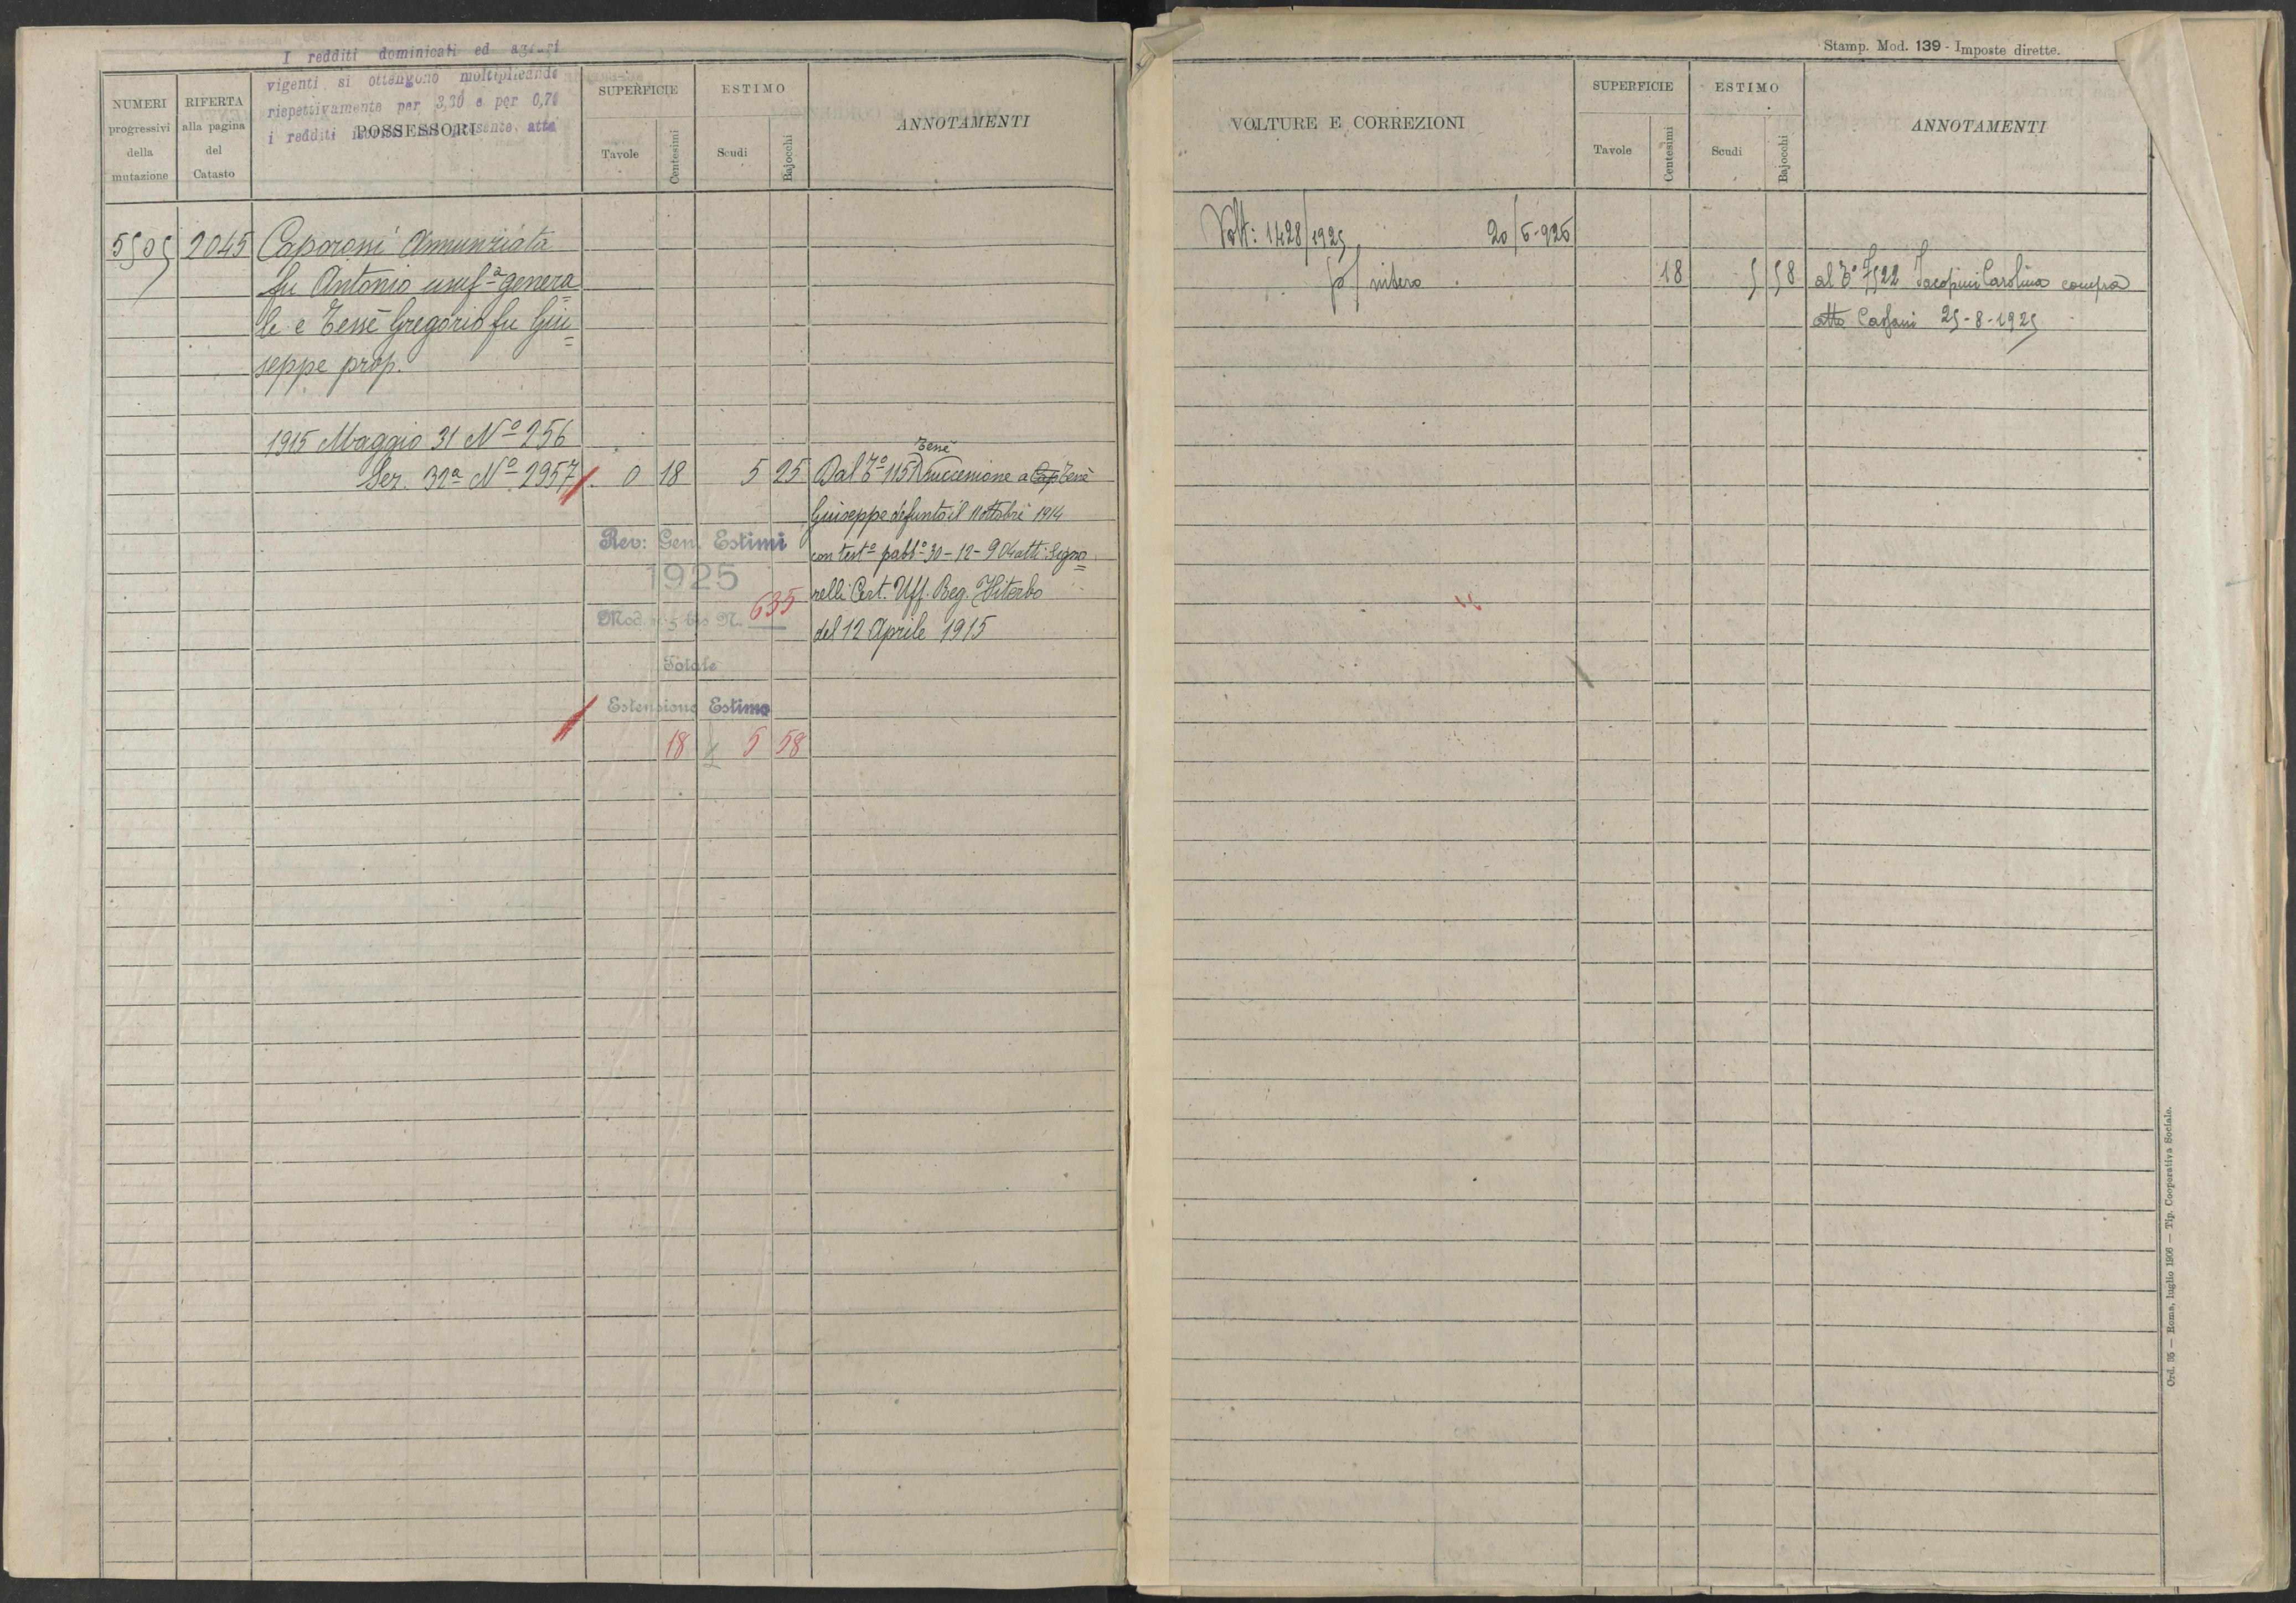 I redditi dominicali ed agrari
vigenti si ottengono moltiplicando
rispettivamente per 3,30 e per 0,70
i redditi presente atto
NUMERI
progressivi
della
mutazione
RIFERTA
alla pagina
del
Catasto
POSSESSORI
SUPERFICIE
Tavole
Centesimi
ESTIMO
Scudi
Bajocchi
ANNOTAMENTI
5505 2045 Caporossi Annunziata
fu Antonio usufª genera
le e Tessè Gregorio fu Giu
seppe prop.
1915 Maggio 31 Nº 256
Ser. 32ª Nº 2957 0 18 5 25
Tessè
Dal 1151 successione a Cap Tessè
Giuseppe defunto il 11 ottobre 1914
con testº pubbº 30-12-904 atti Signo
relli Cert. Uff. Reg. Viterbo
del 12 Aprile 1915
Rev: Gen. Estimi
1925
Mod. n. 5 bis N. 635
Totale
Estensione Estimo
18 5 58
Stamp. Mod. 139 - Imposte dirette.
VOLTURE E CORREZIONI
SUPERFICIE
Tavole
Centesimi
ESTIMO
Scudi
Bajocchi
ANNOTAMENTI
Volt: 1428/1925 20/5-926
p/ intero 18 5 58 al Jacopini Carolina compra
atto 25-8-1925
Ord. 35 — Roma, luglio 1906 — Tip. Cooperativa Sociale.